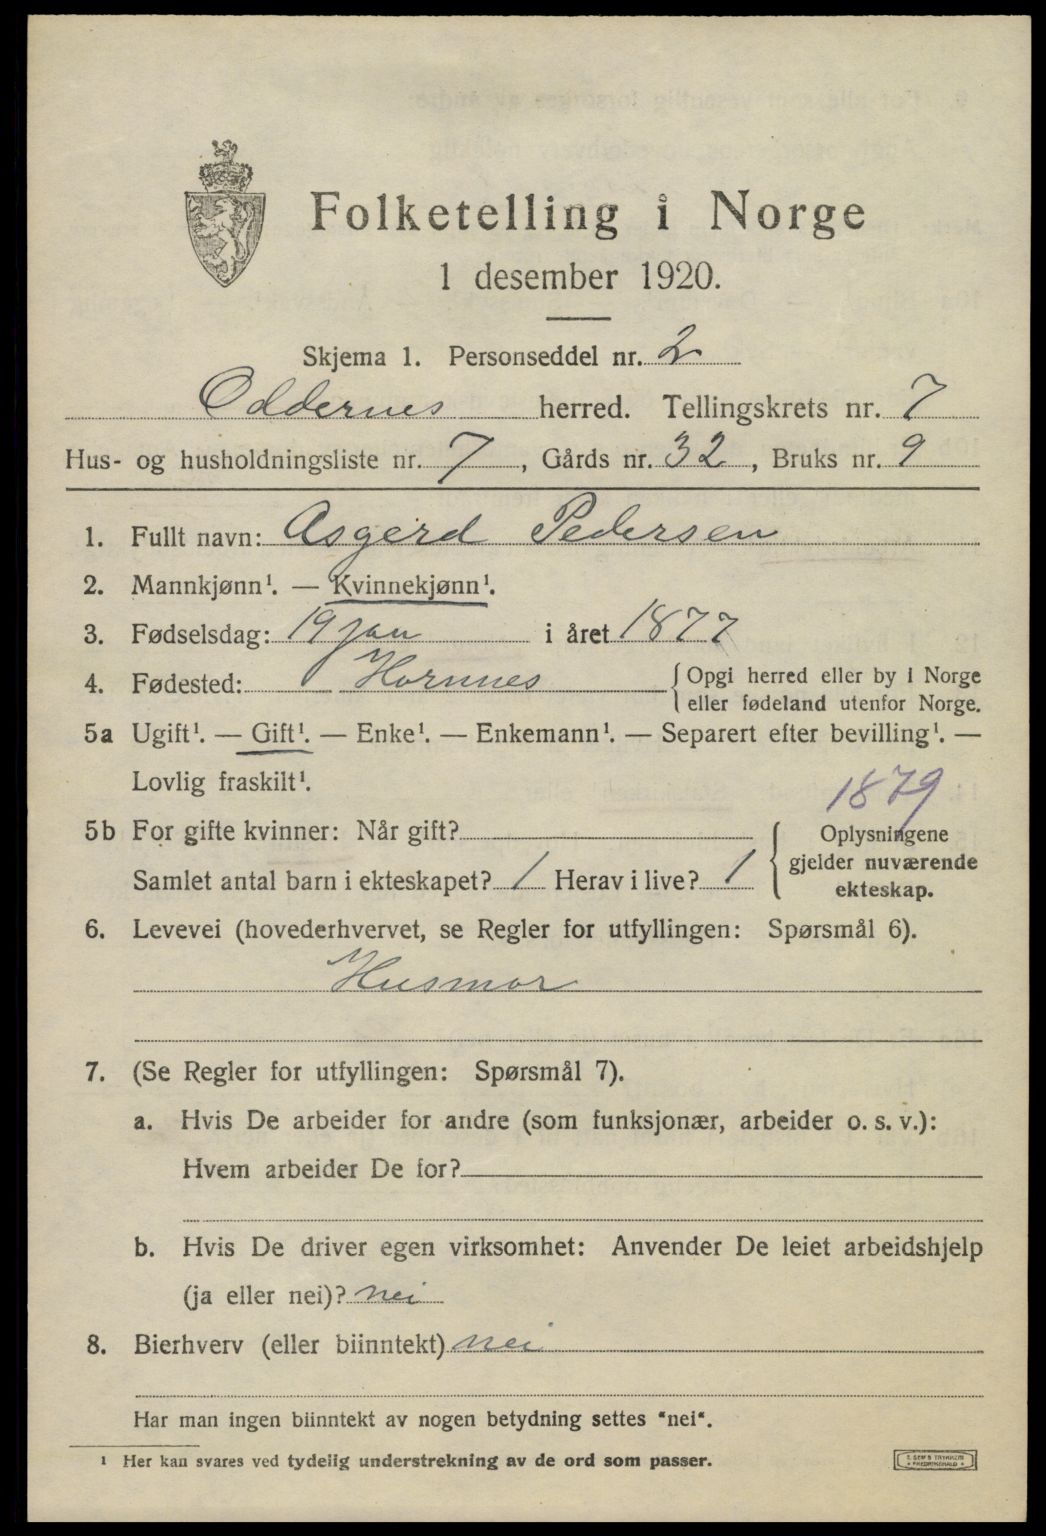 Folketelling i Norge
1 desember 1920.
Skjema 1. Personseddel nr. 2
Oddernes herred. Tellingskrets nr. 7
Hus- og husholdningsliste nr. 7, Gårds nr. 32, Bruks nr. 9
1. Fullt navn: Asgerd Pedersen
2. Mannkjønn¹. — Kvinnekjønn¹.
3. Fødselsdag: 19 jan i året 1877
4. Fødested: Hornnes { Opgi herred eller by i Norge
eller fødeland utenfor Norge.
5a Ugift¹. — Gift¹. — Enke¹. — Enkemann¹. — Separert efter bevilling¹. —
Lovlig fraskilt¹.
1879
5b For gifte kvinner: Når gift?
Samlet antal barn i ekteskapet? 1 Herav i live? 1
{ Oplysningene
gjelder nuværende
ekteskap.
6. Levevei (hovederhvervet, se Regler for utfyllingen: Spørsmål 6).
Husmor
7. (Se Regler for utfyllingen: Spørsmål 7).
a. Hvis De arbeider for andre (som funksjonær, arbeider o. s. v.):
Hvem arbeider De for?
b. Hvis De driver egen virksomhet: Anvender De leiet arbeidshjelp
(ja eller nei)? nei
8. Bierhverv (eller biinntekt) nei
Har man ingen biinntekt av nogen betydning settes "nei".
¹ Her kan svares ved tydelig understrekning av de ord som passer.
E. SEM'S TRYKKERI
FREDRIKSHALD